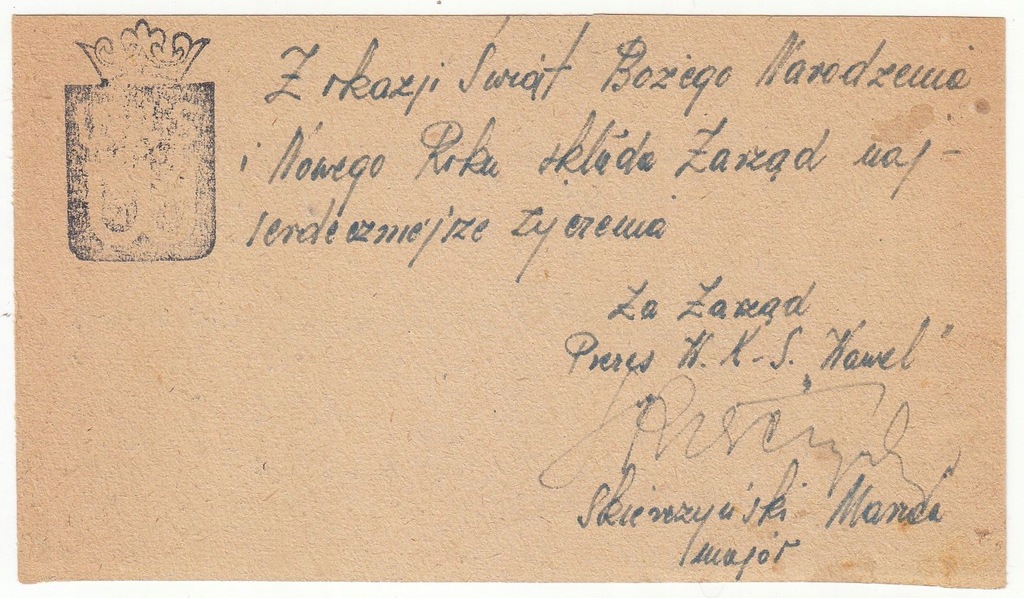 Z okazji Świąt Bożego Narodzenia
i Nowego Roku składa Zarząd naj-
serdeczniejsze życzenia
Za Zarząd
Prezes W. K-S. „Wawel"
Skierczyński
major